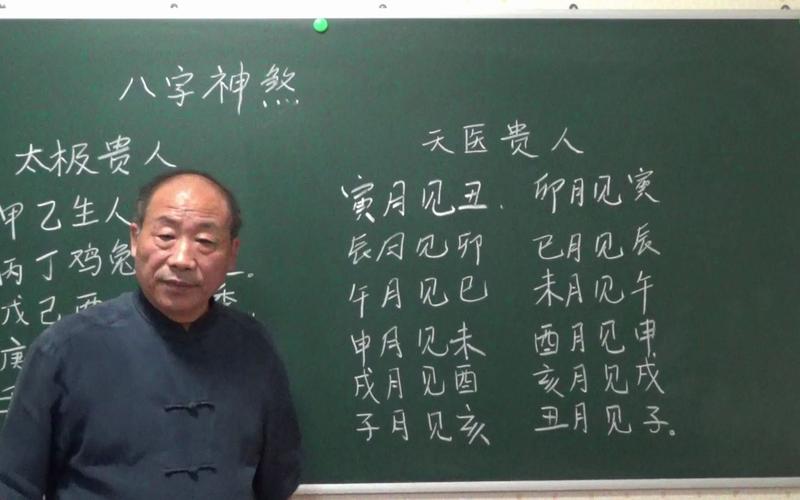 八字神煞
太极贵人
甲乙生人
丙丁鸡兔
戊己
庚
天医贵人
寅月见丑、卯月见寅
辰月见卯 巳月见辰
午月见巳 未月见午
申月见未 酉月见申
戌月见酉 亥月见戌
子月见亥 丑月见子。